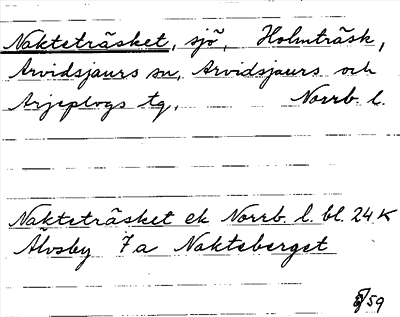 Nakteträsket, sjö, Holmträsk,
Arvidsjaurs sn, Arvidsjaurs och
Arjeplogs tg, Norrb. l.
Nakteträsket ek Norrb. l. bl. 24 K
Älvsby 7a Nakteberget
8/59